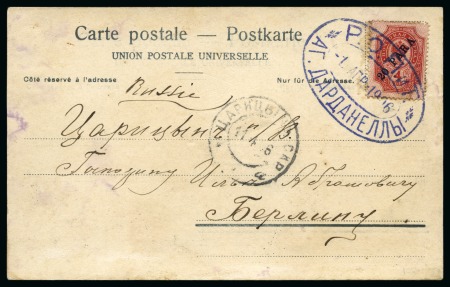 Carte postale – Postkarte
UNION POSTALE UNIVERSELLE
Côté réservé à l'adresse
Nur für die Adresse.
Russie
Р.О.П.
20 PARA
АГ. ДАРДАНЕЛЛЫ
ЦАРИЦЫН
Царицынъ г. В.
Господину Илье Абрамовичу
Берлину